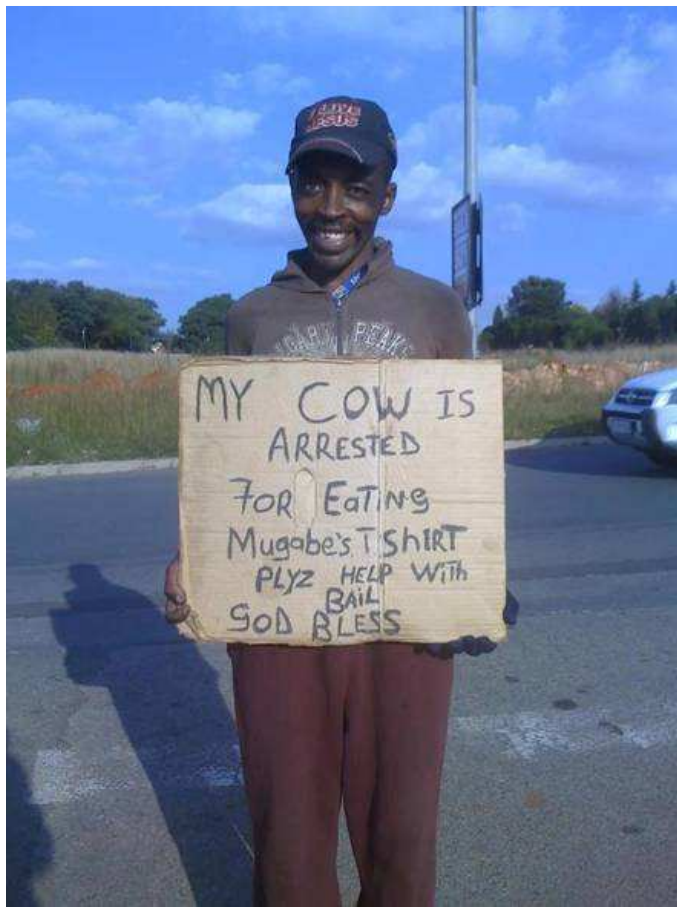 I LOVE
JESUS
PEAKE
MY COW IS
ARRESTED
FOR EaTiNG
Mugabe's T ShiRT
PLYZ HELP With
BAiL
GOD BLESS